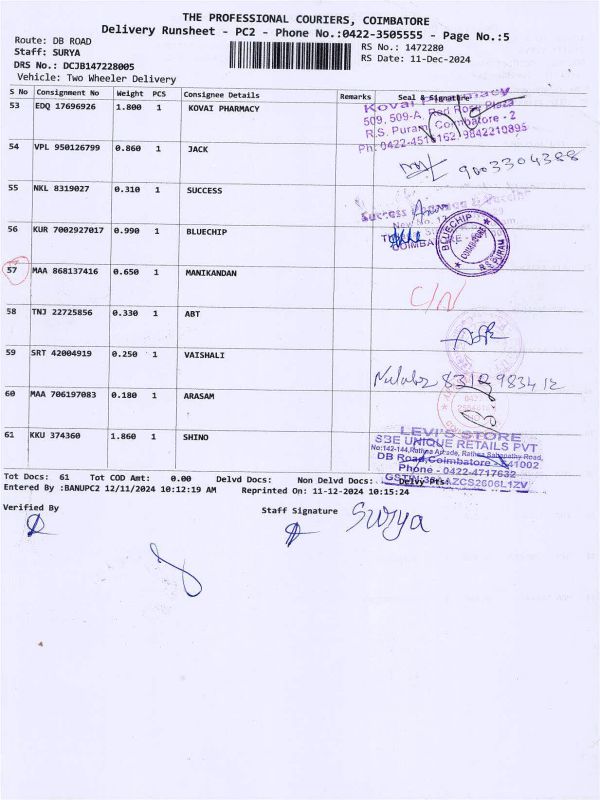 THE PROFESSIONAL COURIERS, COIMBATORE
Delivery Runsheet - PC2 - Phone No.:0422-3505555 - Page No.:5
Route: DB ROAD
RS No.: 1472280
Staff: SURYA
RS Date: 11-Dec-2024
DRS No.: DCJB147228005
Vehicle: Two Wheeler Delivery
S No Consignment No Weight PCS Consignee Details Remarks Seal & Signature
53 EDQ 17696926 1.800 1 KOVAI PHARMACY
Kovai
509, 509-A, Red Rose Plaza
R.S. Puram, Coimbatore - 2
54 VPL 950126799 0.860 1 JACK
9003304388
55 NKL 8319027 0.310 1 SUCCESS
Success
56 KUR 7002927017 0.990 1 BLUECHIP
BLUECHIP
COIMBATORE
R.S.PURAM
57 MAA 868137416 0.650 1 MANIKANDAN
C/N
58 TNJ 22725856 0.330 1 ABT
59 SRT 42004919 0.250 1 VAISHALI
60 MAA 706197083 0.180 1 ARASAM
61 KKU 374360 1.860 1 SHINO
LEVI'S STORE
SBE UNIQUE RETAILS PVT
No:142-144, Rathna Arcade, Rathna Sabapathy Road,
DB Road, Coimbatore - 641002
Phone - 0422-4717632
Tot Docs: 61 Tot COD Amt: 0.00 Delvd Docs: Non Delvd Docs: Delvy Pts:
Entered By :BANUPC2 12/11/2024 10:12:19 AM Reprinted On: 11-12-2024 10:15:24
Verified By
Staff Signature Surya